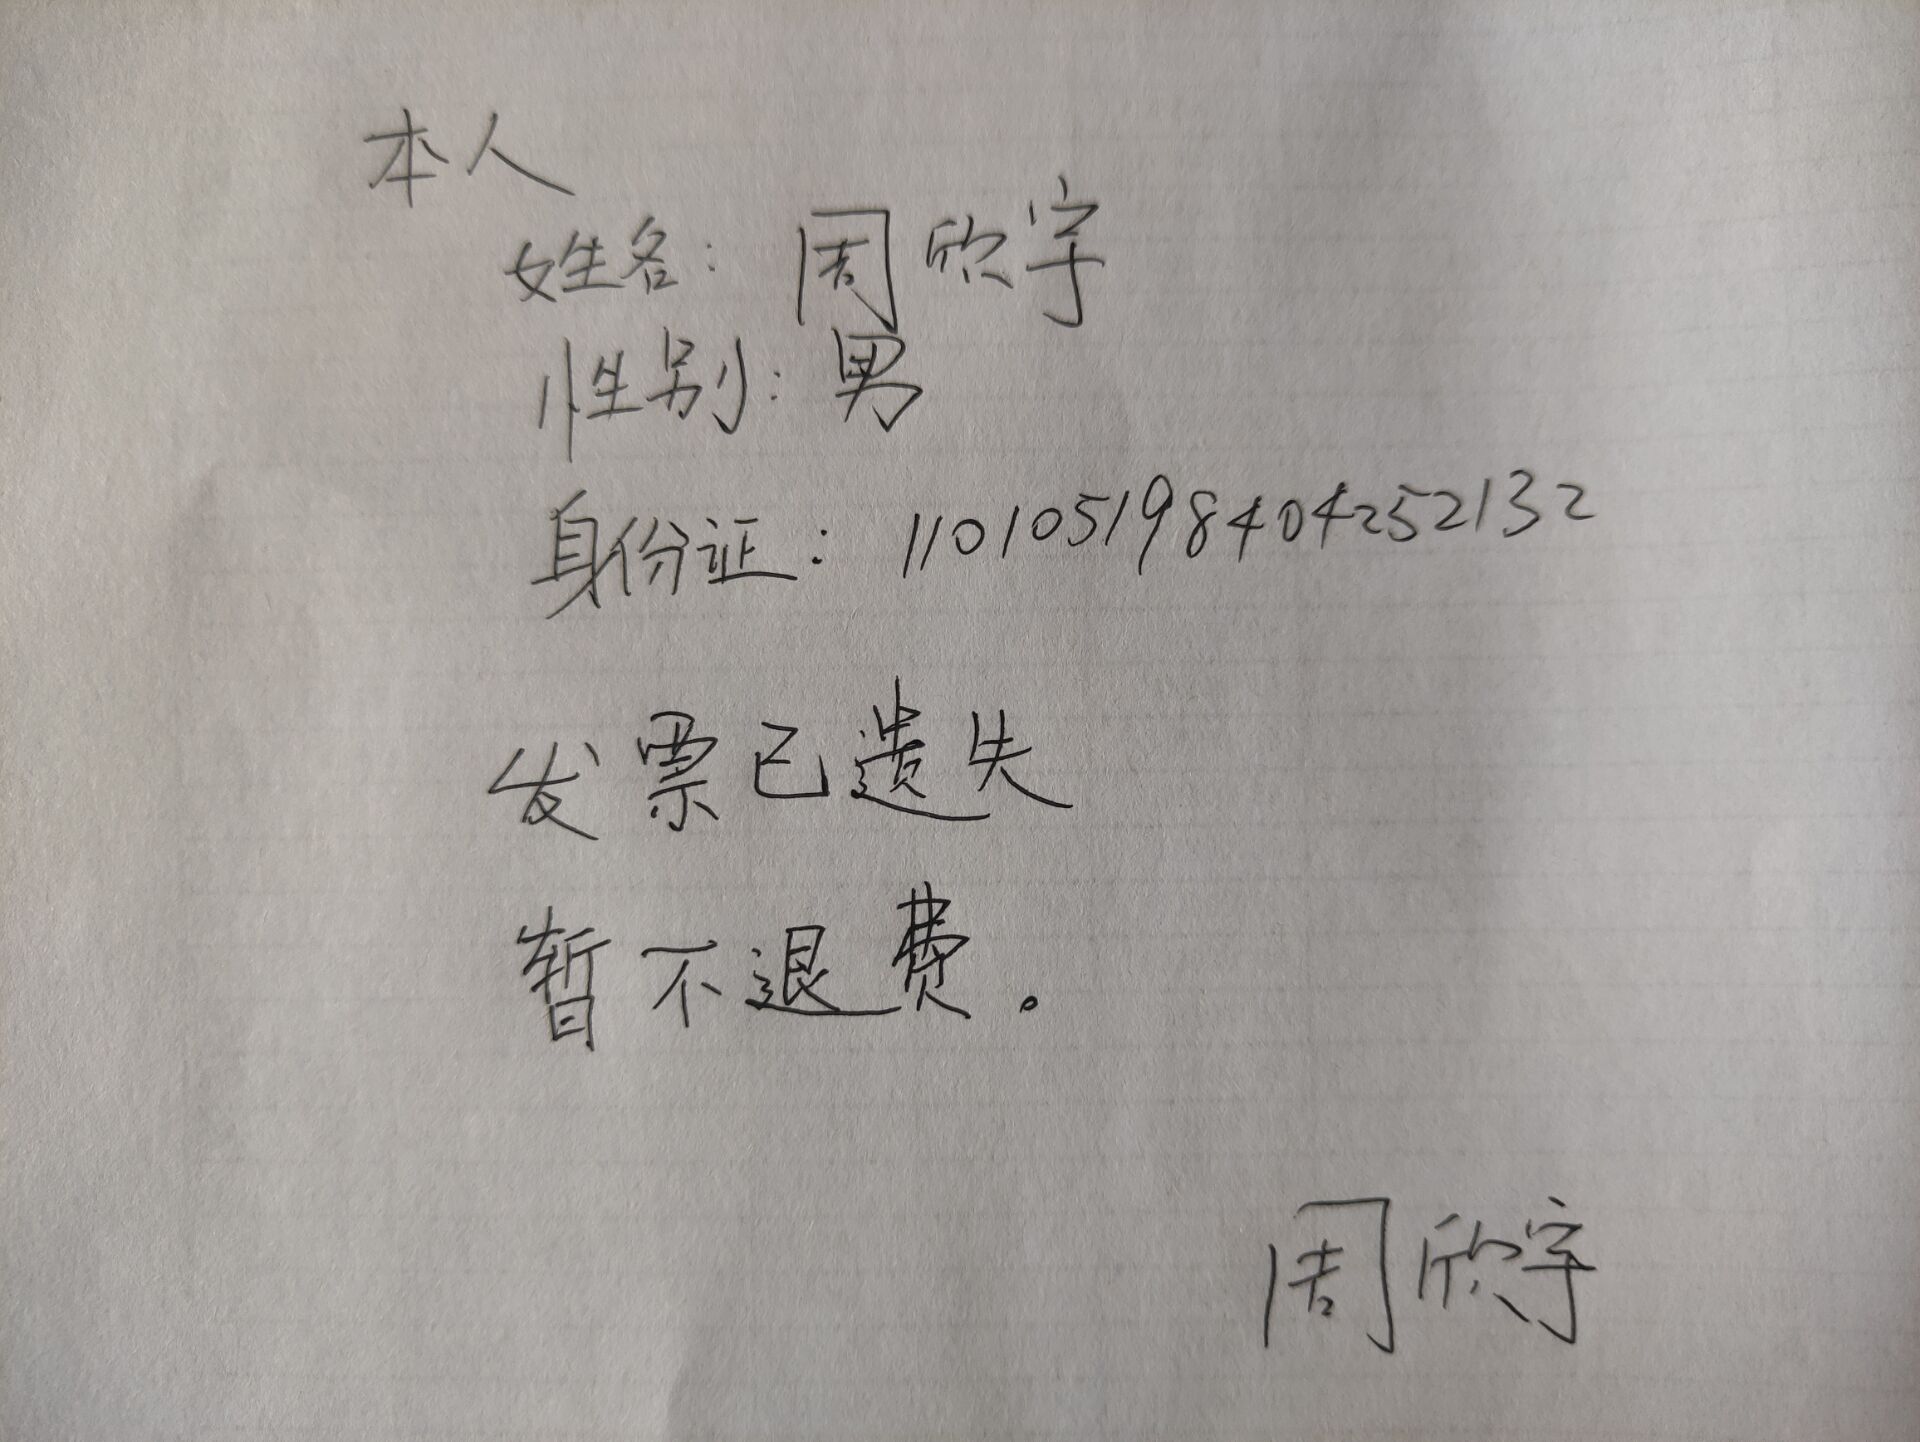 本人
姓名：周欣宇
性别：男
身份证：110105198404252132
发票已遗失
暂不退费。
周欣宇